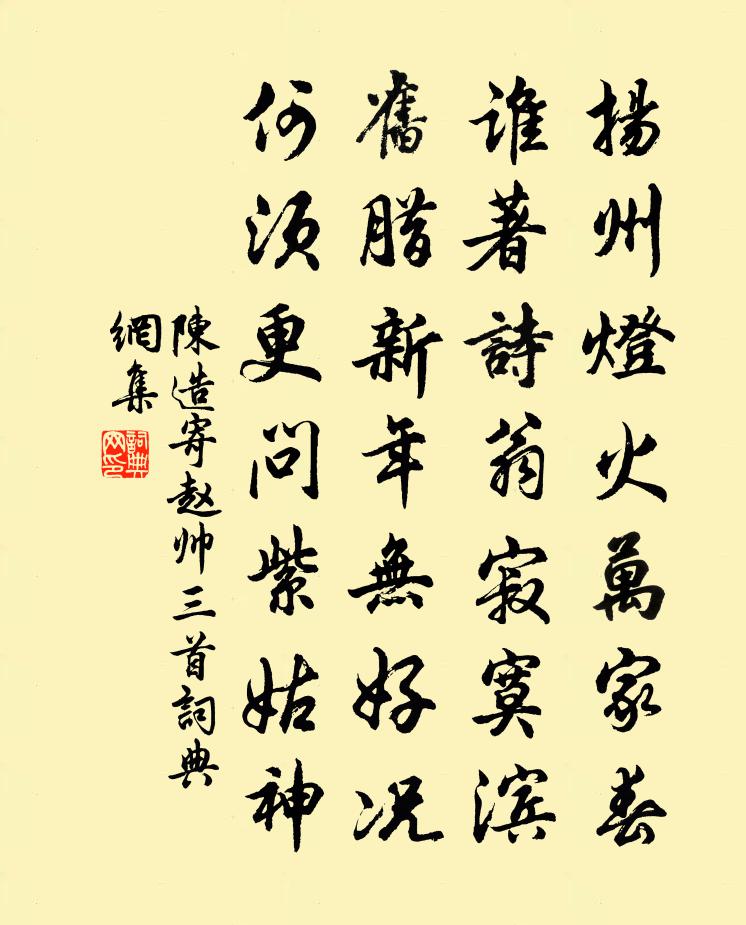 揚州燈火萬家春
誰著詩翁寂寞滨
舊腊新年無好况
何須更問紫姑神
陳造寄赵帅三首詞典
網集
詞典
网印